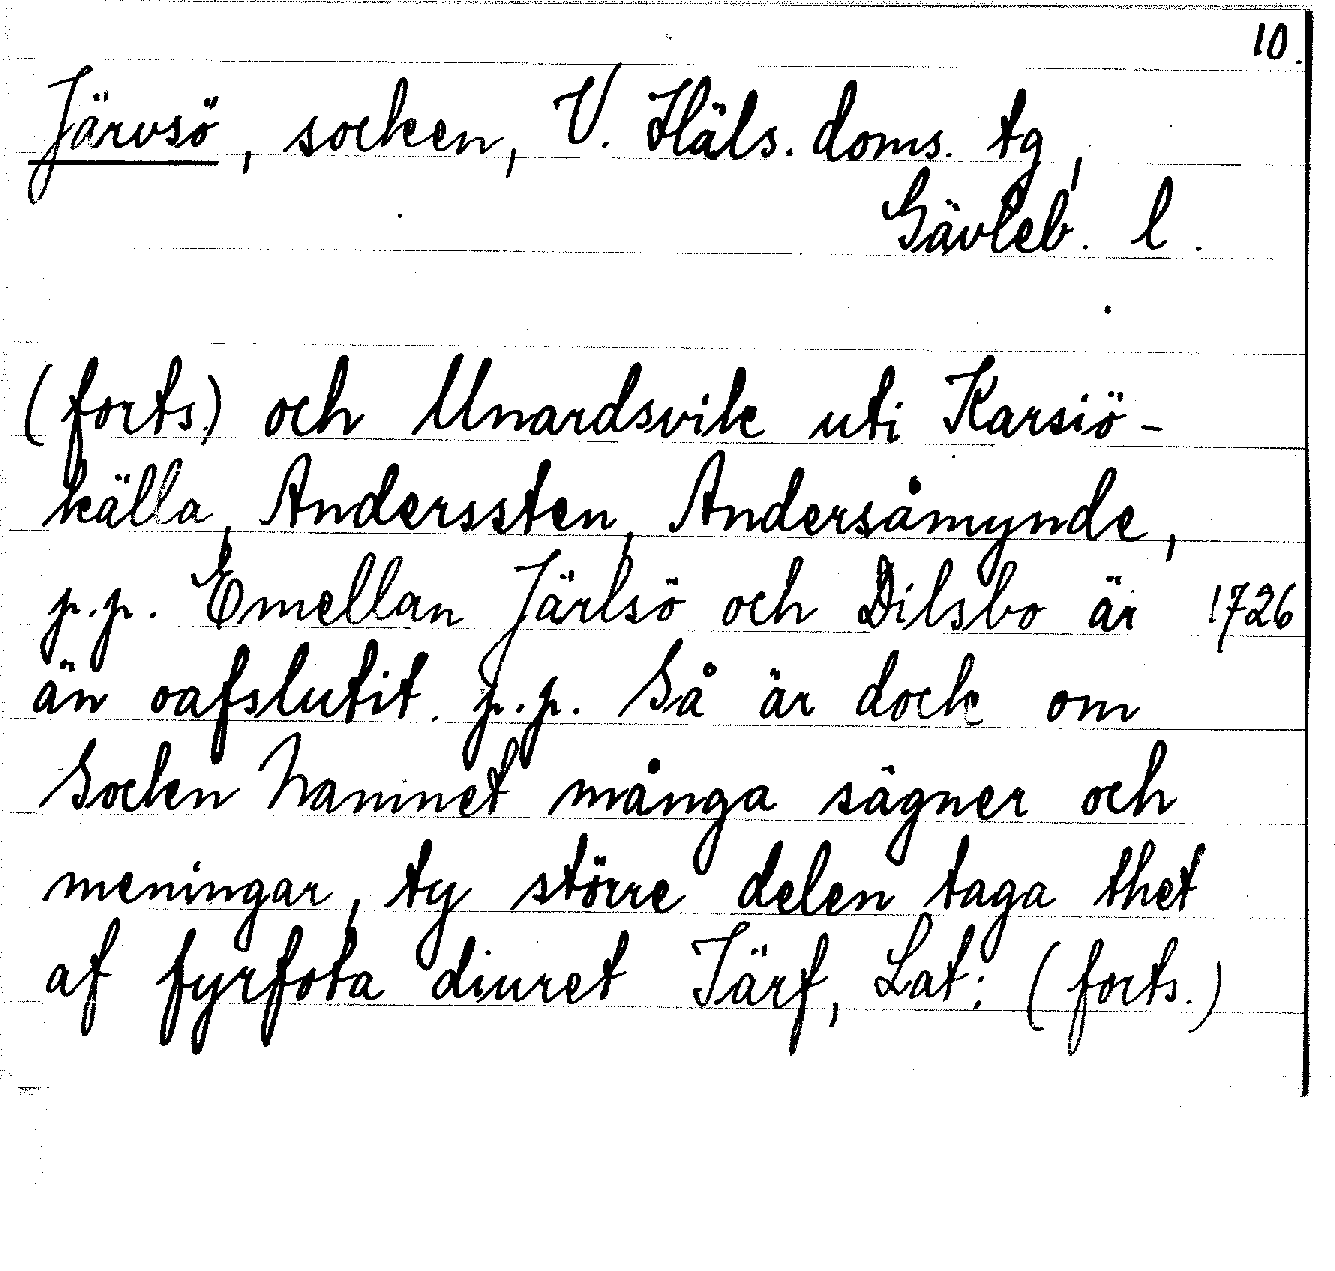 10.
Järvsö, socken, V. Häls. doms. tg,
Gävleb. l.
(forts.) och Unardsvik uti Karsiö-
källa, Anderssten, Andersåmynde,
p.p. Emellan Järlsö och Dilsbo är 1726
än oafslutit. p.p. Så är dock om
Socken Namnet många sägner och
meningar, ty större delen taga thet
af fyrfota diuret Järf, Lat: (forts.)